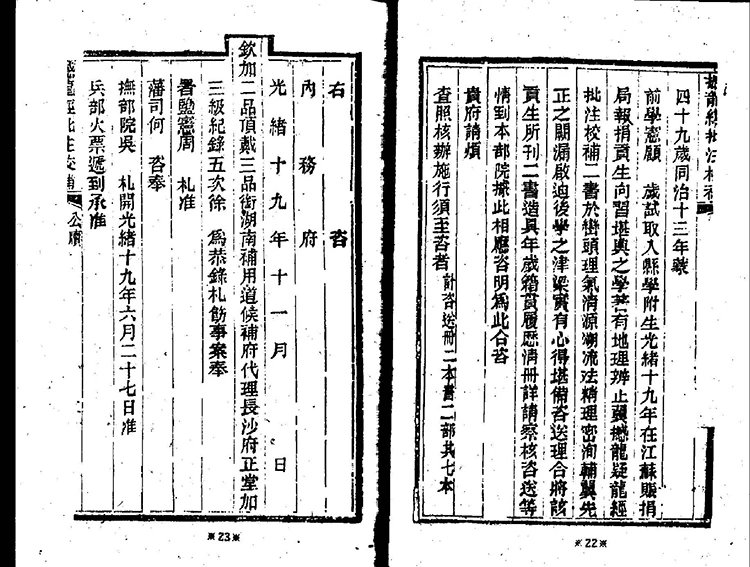 撼龍經批注校補
四十九歲同治十三年蒙
前學憲顧 歲試取入縣學附生光緒十九年在江蘇賑捐
局報捐貢生向習堪輿之學著有地理辨止翼撼龍疑龍經
批注校補二書於巒頭理氣清源溯流法精理密洵輔翼先
正之闕漏啟迪後學之津梁實有心得堪備咨送理合將該
貢生所刊二書造具年歲籍貫履歷清冊詳請察核咨送等
情到本部院據此相應咨明為此合咨
貴府請煩
查照核辦施行須至咨者 計咨送冊二本書二部共七本
※22※
右 咨
內務府
光緒十九年十一月 日
欽加二品頂戴三品銜湖南補用道候補府代理長沙府正堂加
三級紀錄五次徐 為恭錄札飭事案奉
署鹽憲周 札准
藩司何 咨奉
撫部院吳 札開光緒十九年六月二十七日准
兵部火票遞到承准
撼龍經批注校補 公牘
※23※